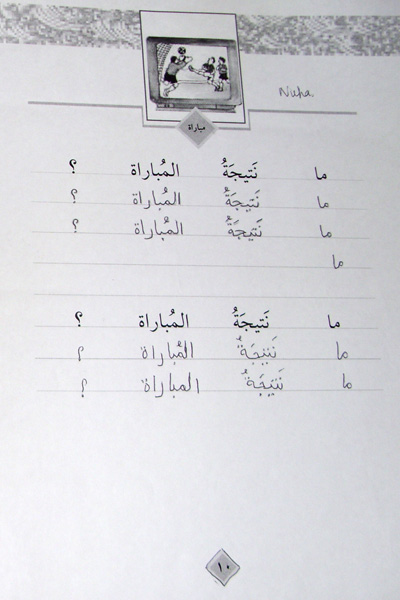 Nuha
مباراة
ما نَتيجَةُ المُباراة ؟
ما نَتيجَةُ المُباراة ؟
ما نَتيجَةُ المُباراة ؟
ما
ما نَتيجَةُ المُباراة ؟
ما نَتيجَةُ المُباراة ؟
ما نَتيجَةُ المباراة ؟
١٠